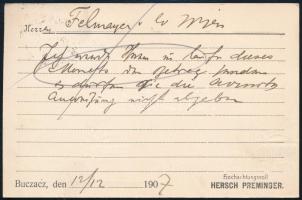 Herren Felmayer & Co Wien
Ich werde Ihnen im laufe dieses
Monats den betrag senden
es dürfen Sie die
Anweisung nicht abgeben
Buczacz, den 12/12 1907
Hochachtungsvoll
HERSCH PREMINGER.